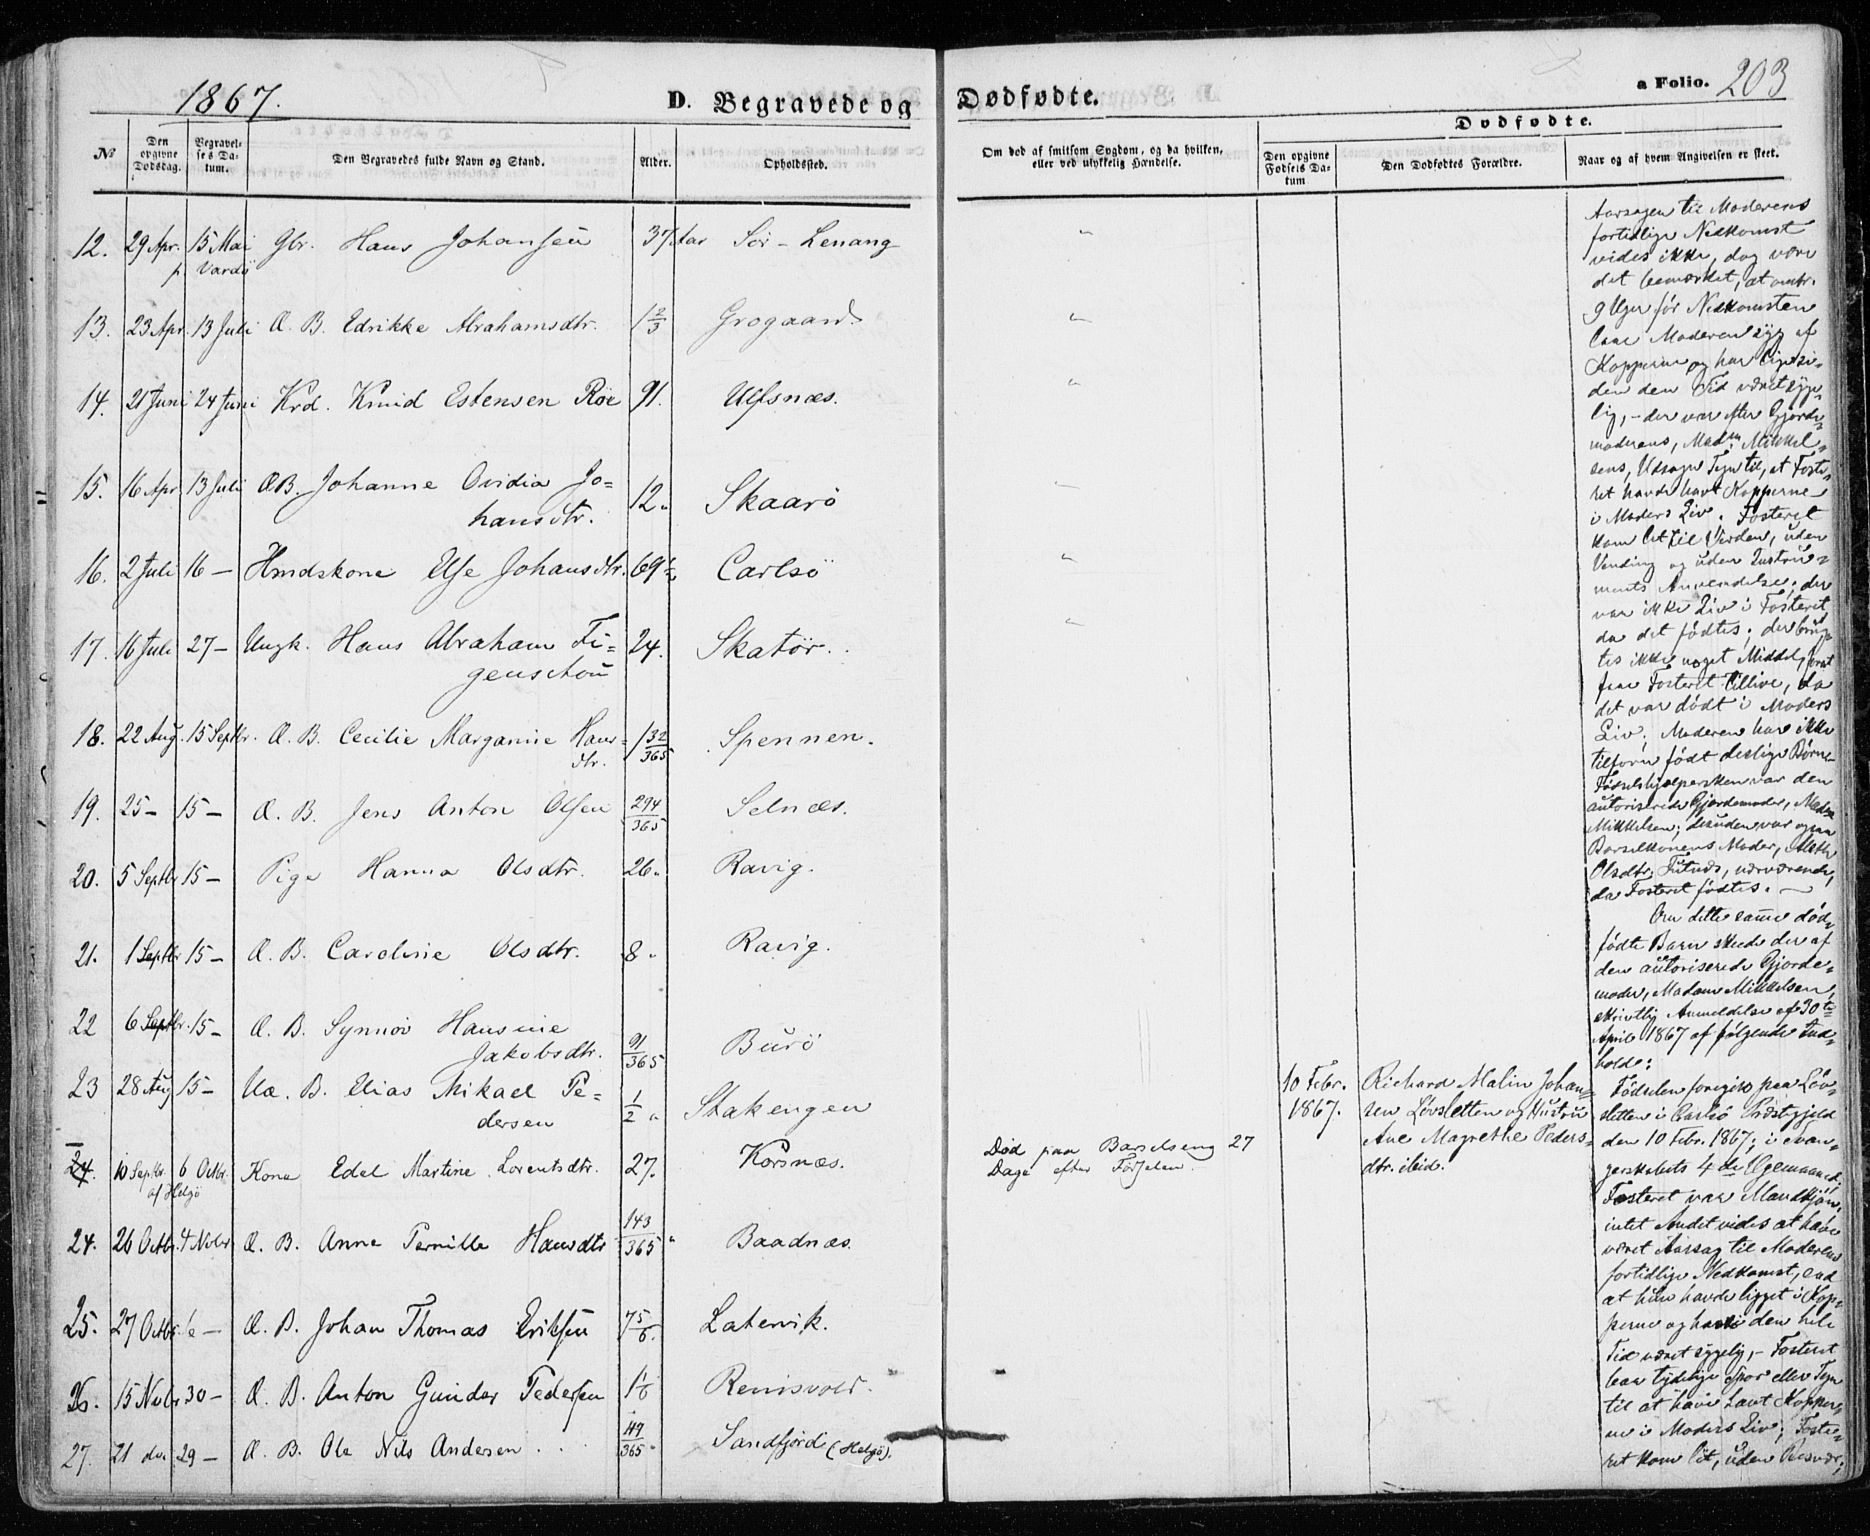 1867.
D. Begravede og Dødfødte.
a Folio. 203
Dødfødte.
No
Den opgivne Dødsdag.
Begravelses Datum.
Den Begravedes fulde Navn og Stand.
Alder.
Opholdssted.
Om død af smitsom Sygdom, og da hvilken, eller ved ulykkelig Hændelse.
Den opgivne Fødsels Datum
Den Dødfødtes Forældre.
Naar og af hvem Angivelsen er skeet.
12. 29 Apr. 15 Mai Gbr. Hans Johansen 37 Aar Sör-Lenang "
p Vardö
13. 23 Apr. 13 Juli Æ. B. Edrikke Abrahamsdtr. 1 2/3 Grogaard. "
14. 21 Juni 24 Juni Krd. Knud Estensen Röe 91. Ulfsnæs. "
15. 16 Apr 13 Juli ÆB. Johanne Ovidia Jo-
hansdtr. 12. Skaarö "
16. 2 Juli 16 - Hmdskone Else Johansdtr. 69 Carlsö "
17. 16 Juli 27 - Ungk. Hans Abraham Fi-
genschou 24. Skatör. "
18. 22 Aug. 15 Septbr. Æ. B. Cecilie Margarine Hans-
dtr. 1 32/365 Spennen.
19. 25 - 15 - Æ. B. Jens Anton Olsen 294/365 Selnæs.
20. 5 Septbr 15 - Pige Hanna Olsdtr. 26. Ravig.
21. 1 Septbr 15 - Æ. B. Caroline Olsdtr. 8. Ravig.
22 6 Septbr. 15 - Æ. B. Synnöv Hansine
Jakobsdtr. 91/365 Burö
23 28 Aug 15 - Uæ. B. Elias Mikael Pe-
dersen 1/2 " Stakengen
24. 10 Septbr. 6 Octbr. Kone Edel Martine Lorentsdtr. 27. Korsnæs. Död paa Barselseng 27
af Helgö Dage efter Fødselen.
24. 26 Octbr. 4 Novbr Æ. B. Anne Pernille Hansdtr 143/365 " Baadnæs.
25. 27 Octbr. 6 - Æ. B. Johan Thomas Eriksen 7 5/6. Latervik.
26. 15 Novbr 30 - Æ. B. Anton Gunder Pedersen 1 1/6 Renisvold.
27. 21 do. 29 - Æ. B. Ole Nils Andersen . . . 49/365 " Sandfjord (Helgö).
10 Febr.
1867.
Richard Malin Johan-
sen Lövsletten og Hustru
Ane Magrethe Peders-
dtr. ibid.
Aarsagen til Moderens
fortidlige Nedkomst
vides ikke, dog være
det bemærket, at omtr.
9 Uger för Nedkomsten
laae Moderen syg af
Kopperne og har ligesi-
den den Tid været syge-
lig, - der var efter Gjorde-
moderens, Madm. Mikkel-
sens, Udsagn Tegn til, at Foste-
ret havde havt Kopperne
i Moders Liv. Fosteret
kom let til Verden, uden
Vending og uden Instru-
ments Anvendelse; der
var ikke Liv i Fosteret,
da det födtes; der brug-
tes ikke noget Middel, forat
faae Fosteret tillive, da
det var dödt i Moders
Liv; Moderen har ikke
tilforn födt deslige Börn.
Födselshjælpersken var den
autoriserede Gjordemoder, Madm
Mikkelsen; desuden var ogsaa
Barselkonens Moder,
Olsdtr. nærværende,
da Fosteret födtes. -
Om dette samme död-
födte Barn skede der af
den autoriserede Gjorde-
moder, Madame Mikkelsen,
skriftlig Anmeldelse af 30te
April 1867 af fölgende Ind-
hold:
Födselen foregik paa Löv-
sletten i Carlsö Præstegjeld
den 10 Febr. 1867; i Svan-
gerskabets 4de Ugemaaned,
Fosteret var Mandkjön,
intet Andet vides at have
været Aarsag til Moderens
fortidlige Nedkomst, end
at hun havde ligget i Kop-
perne og havde den hele
Tid været sygelig, - Fosteret
bar tydelige Spor eller Tegn
til at have havt Kopper-
ne i Moders Liv; Foste-
ret kom let, uden